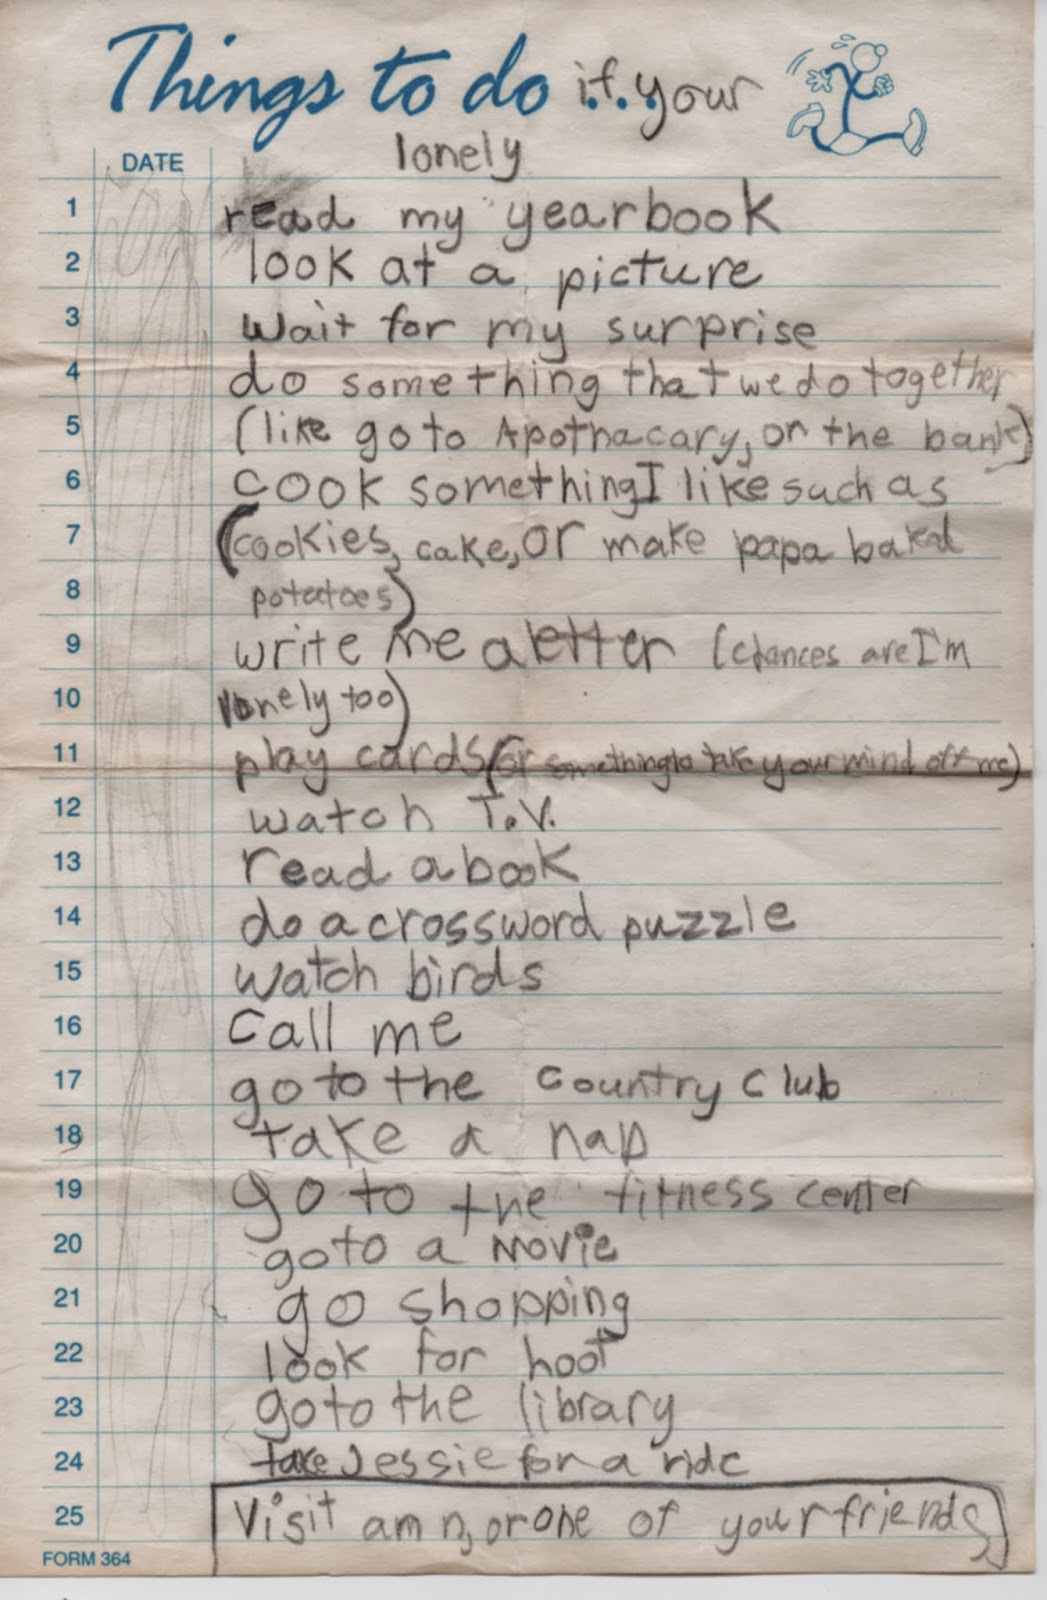 Things to do if.. your
lonely
DATE
1 read my yearbook
2 look at a picture
3 wait for my surprise
4 do something that we do together
5 (like go to Apothacary, or the bank)
6 cook something I like such as
7 (cookies, cake, or make papa baked
8 potatoes)
9 write me a letter (chances are I'm
10 lonely too)
11 play cards (or something to take your mind off me)
12 watch T.V.
13 read a book
14 do a crossword puzzle
15 watch birds
16 call me
17 go to the country club
18 take a nap
19 go to the fitness center
20 go to a movie
21 go shopping
22 look for hoot
23 go to the library
24 take Jessie for a ride
25 Visit or one of your friends
FORM 364